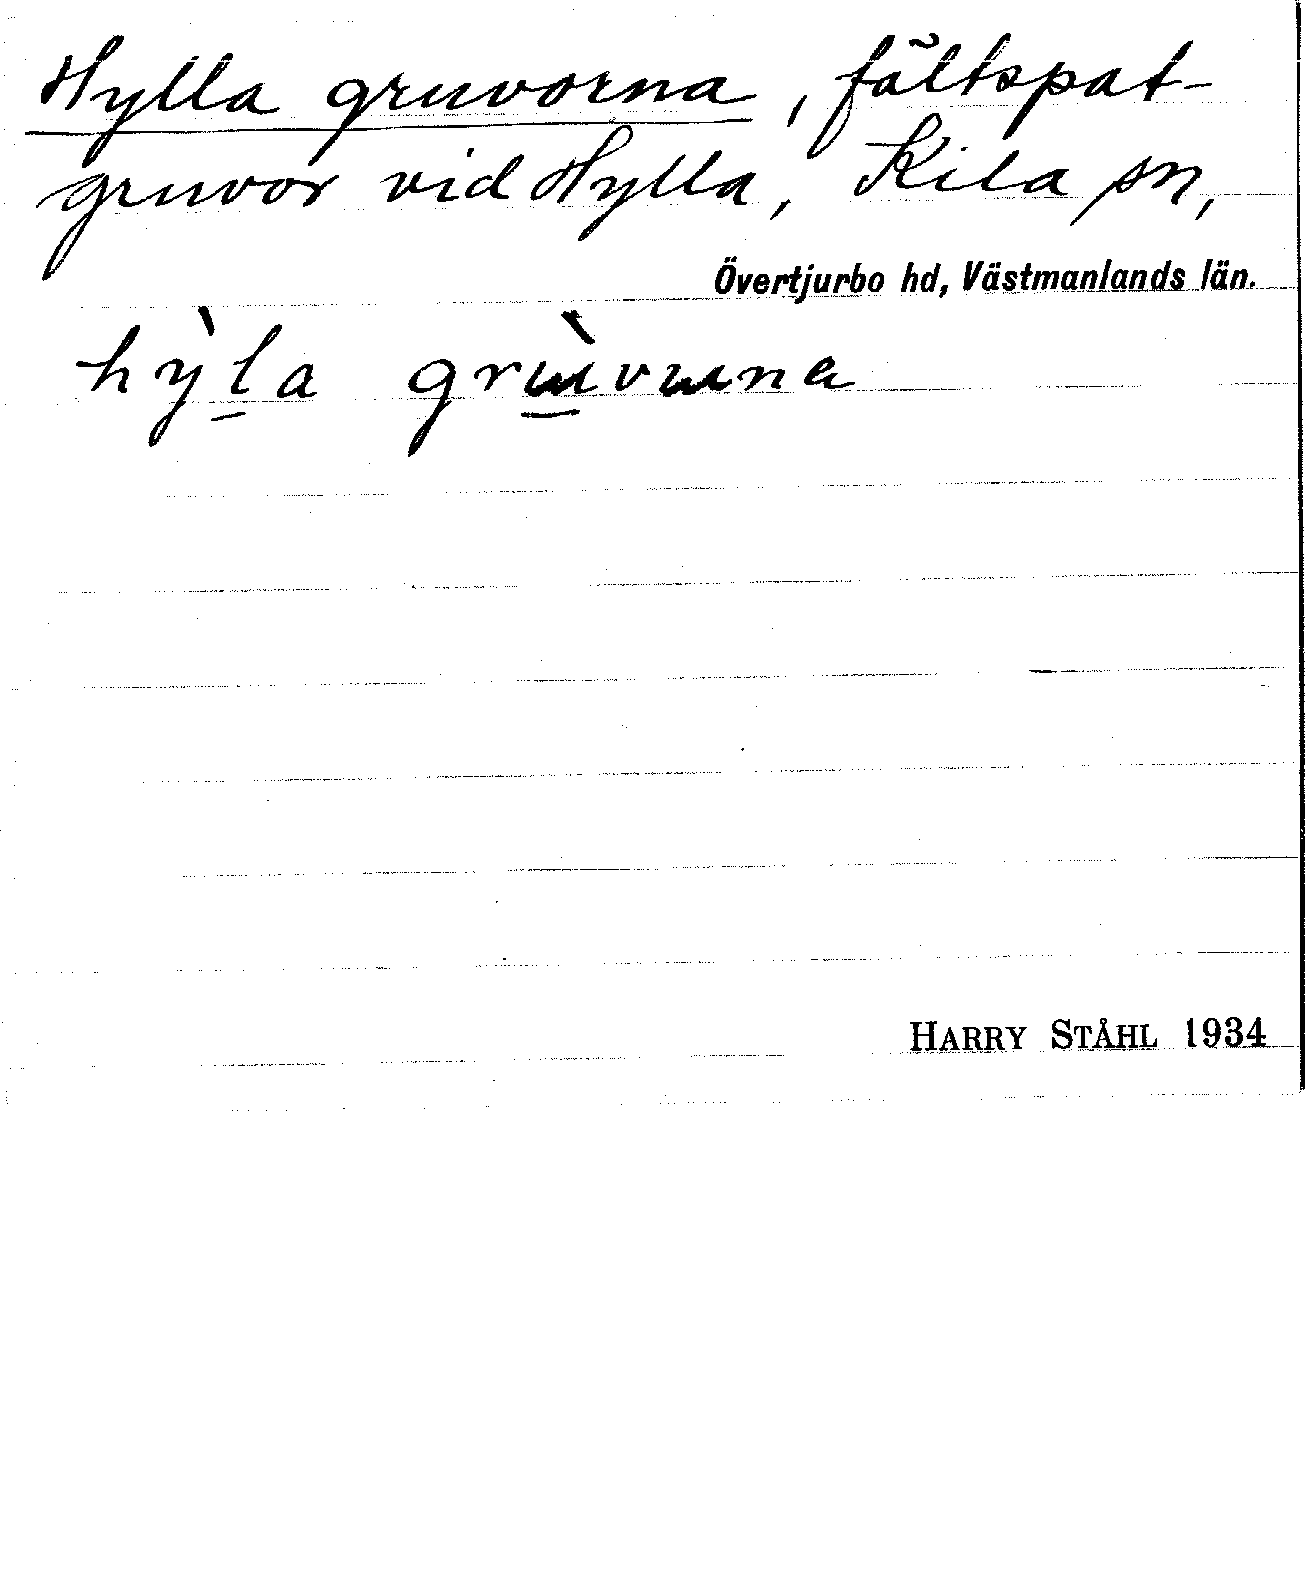 Hylla gruvorna, fältspat-
gruvor vid Hylla, Kila sn,
Övertjurbo hd, Västmanlands län.
hỳl̲a grɯ̲̀vɯna
HARRY STÅHL 1934